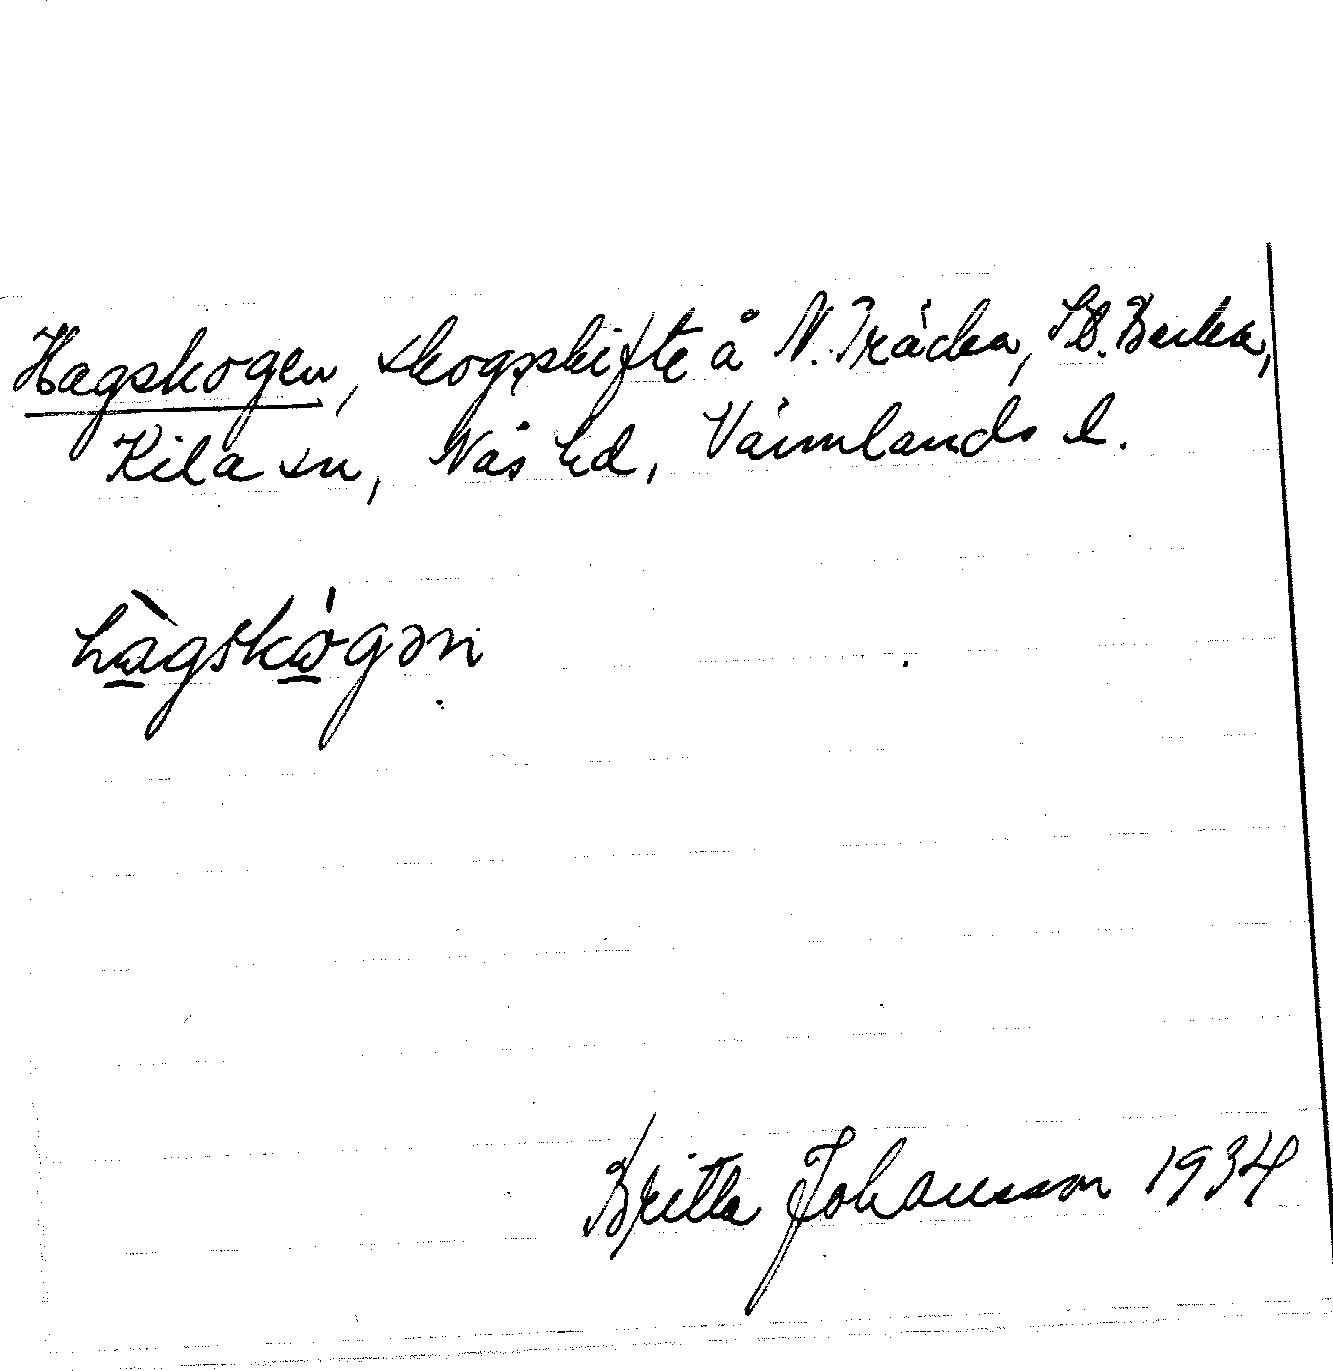 Hagskogen, skogsskifte å N. Träcka, St. Berka,
Kila sn, Näs hd, Värmlands l.
hàgskógən
Britta Johansson 1934